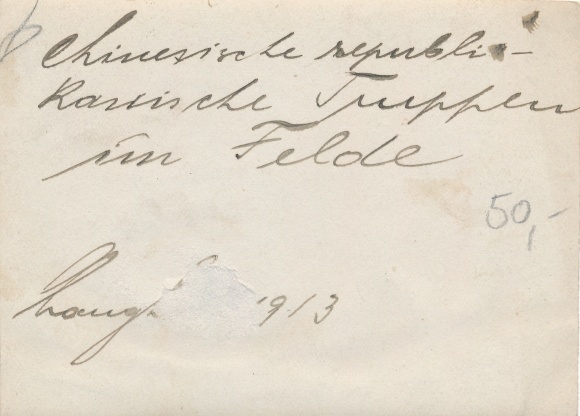 Chinesische republi-
kanische Truppen
im Felde
50,-
1913